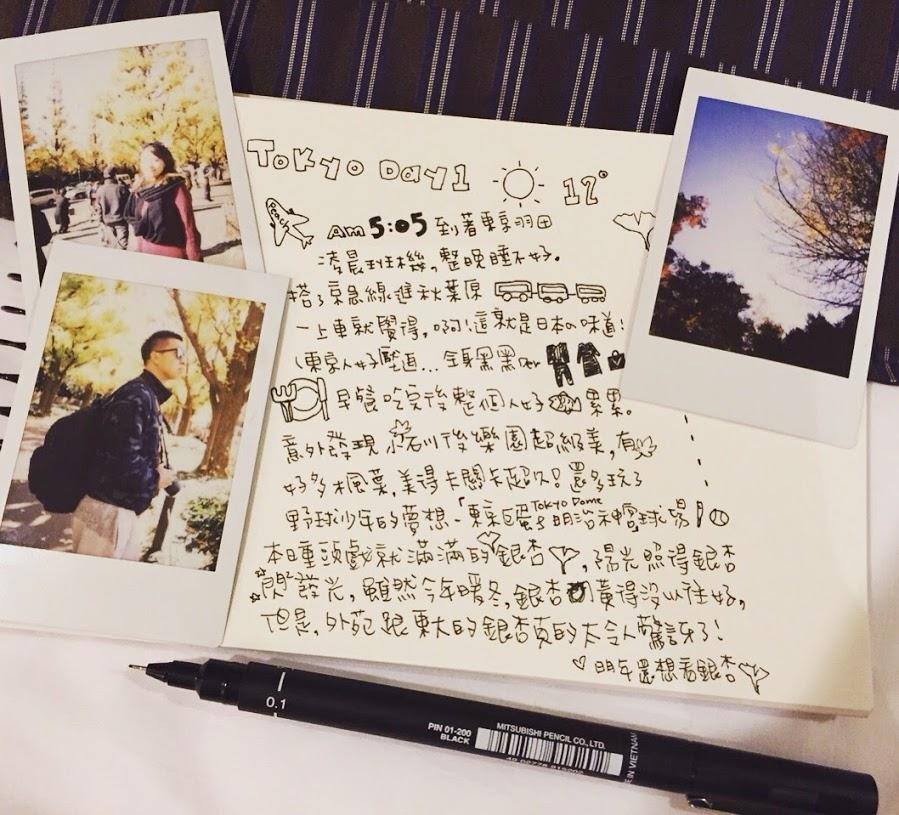 Tokyo Day1 12°
Peach
AM 5:05 到著東京羽田
凌晨班機，整晚睡不好。
搭了京急線進秋葉原
一上車就覺得，啊！這就是日本の味道！
（東京人好壓迫... 全身黑黑der
早餐吃完後整個人好累累。
意外發現小石川後樂園超級美，有
好多楓葉，美得卡關卡超久！還多玩了
野球少年的夢想-「東京巨蛋& 明治神宮球場
Tokyo Dome
本日重頭戲就滿滿的銀杏，陽光照得銀杏
閃發光，雖然今年暖冬，銀杏黃得沒以往好，
但是，外苑跟東大的銀杏真的太令人驚訝了！
♡ 明年還想看銀杏
0.1
PIN 01-200
BLACK
MITSUBISHI PENCIL CO., LTD.
IN VIETNAM